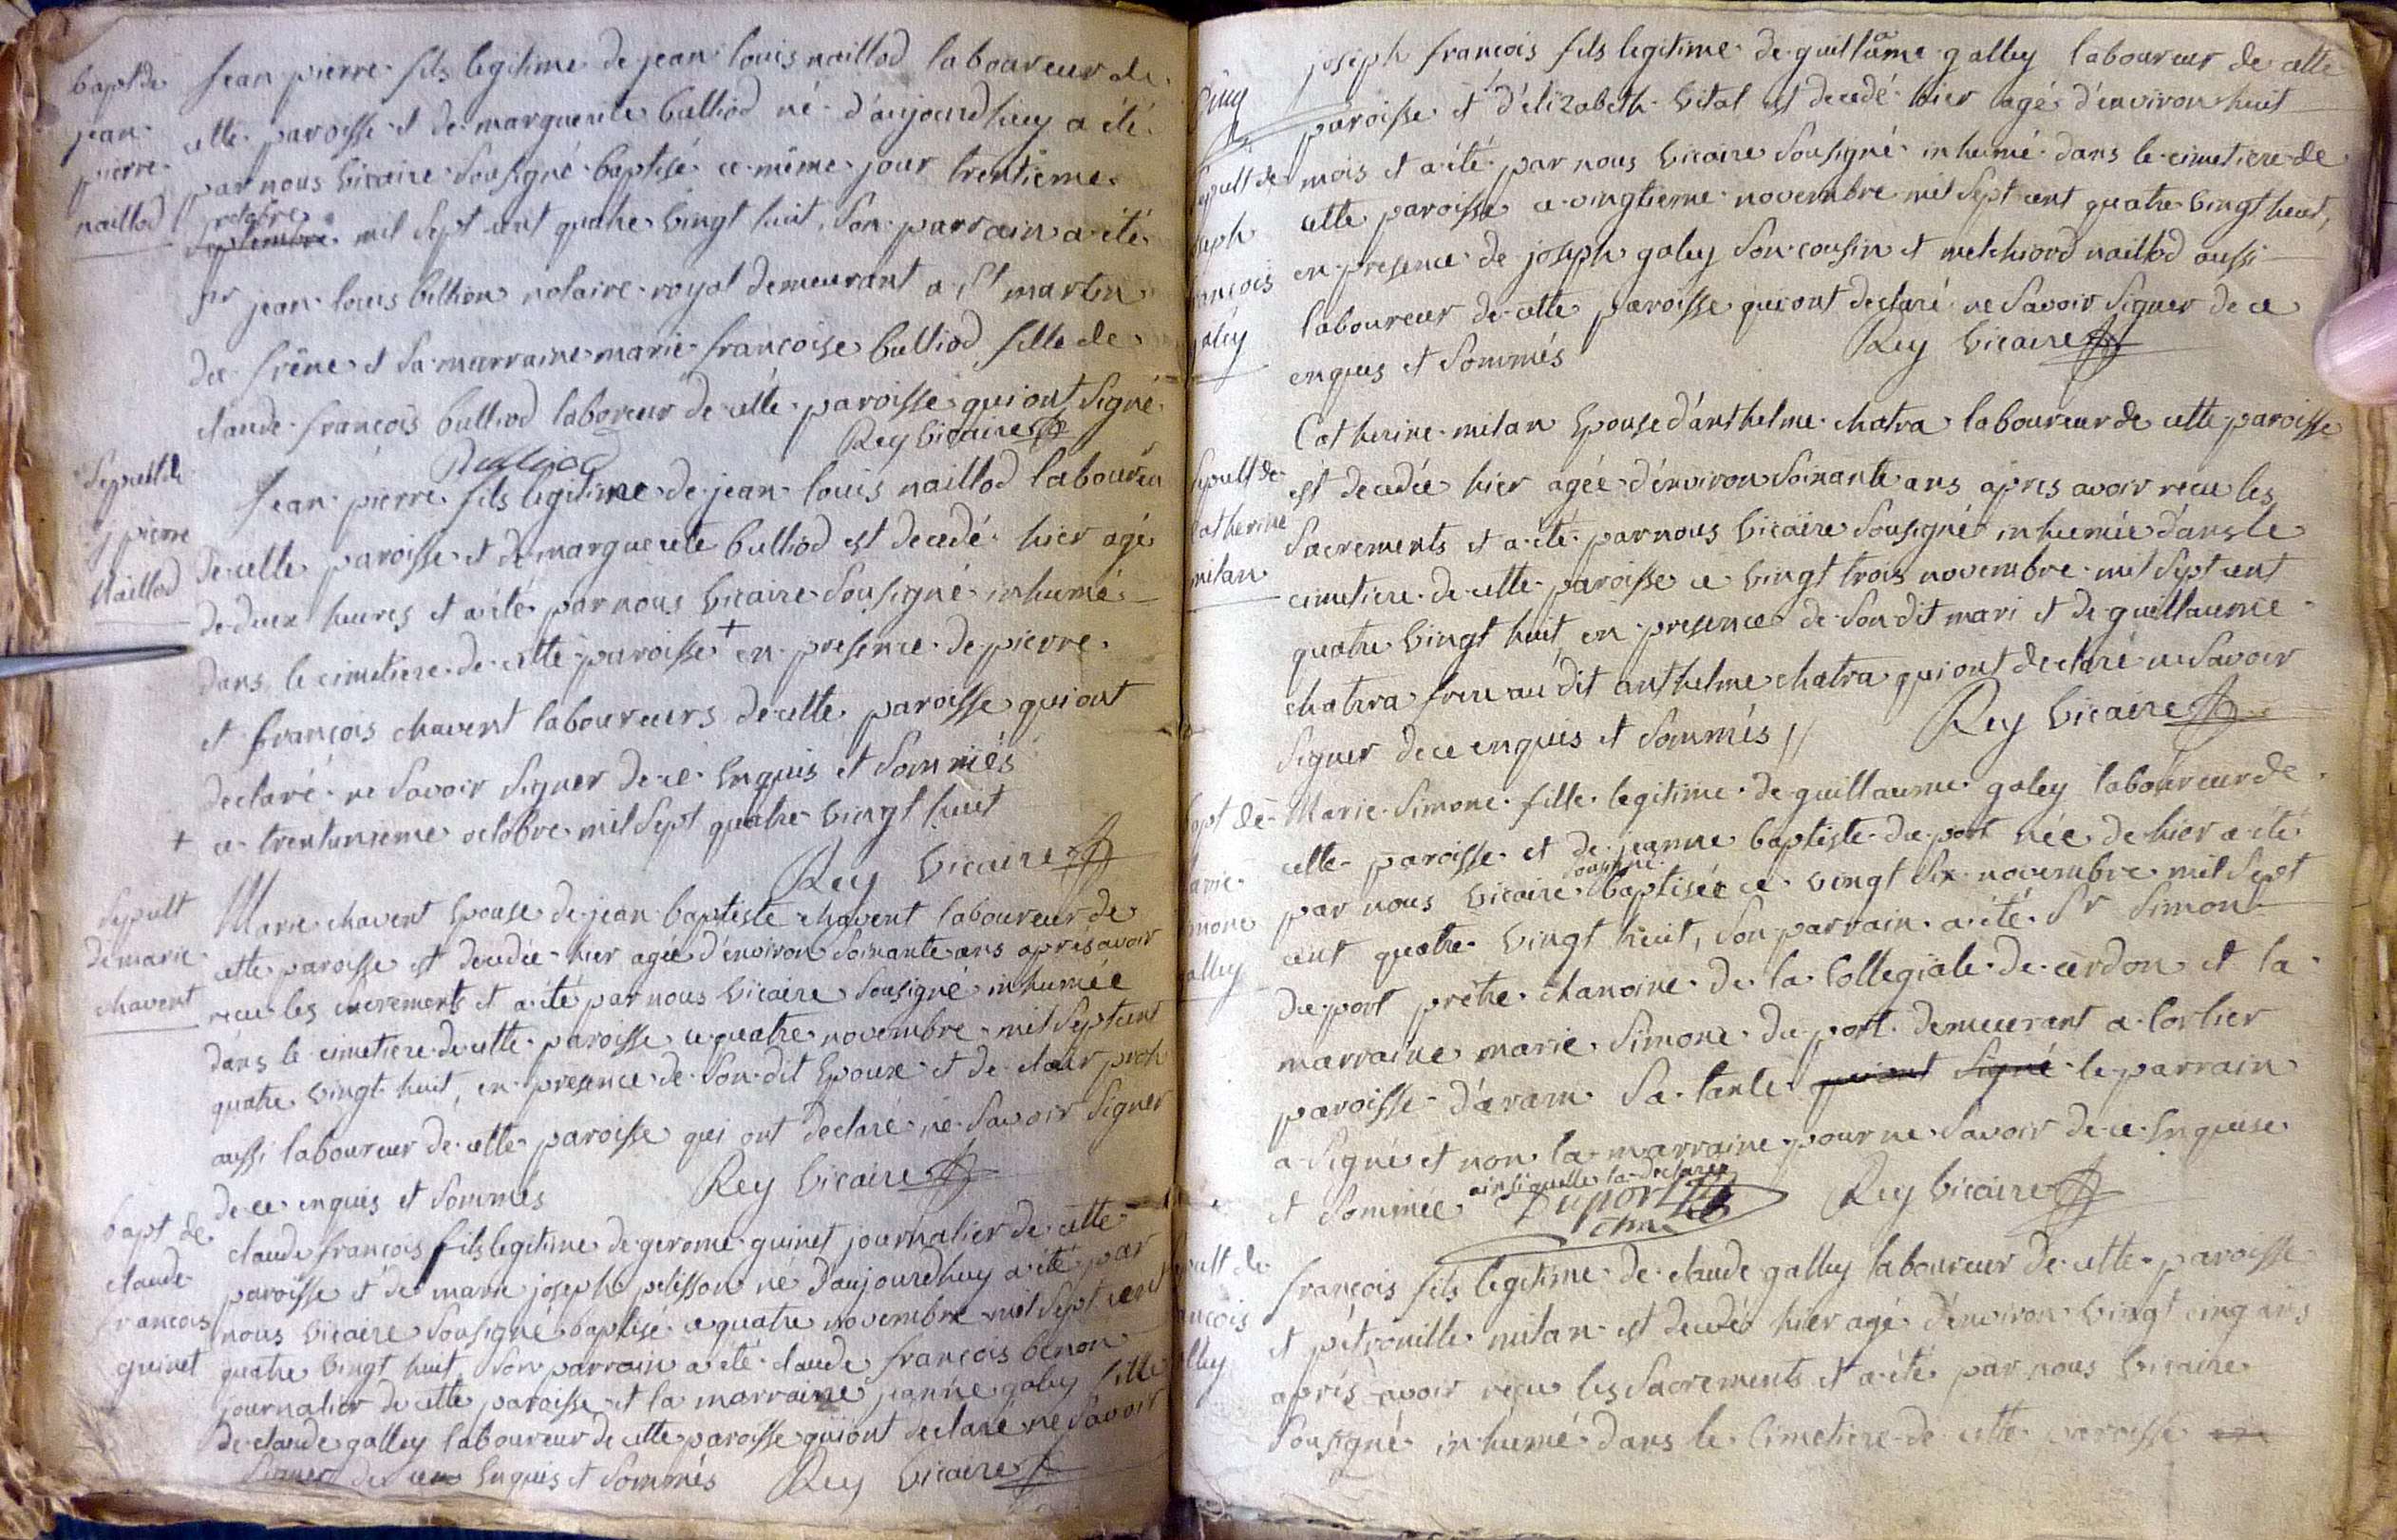 bapt de
jean
pierre
naillod
jean pierre fils legitime de jean louis naillod laboureur de
cette paroisse et de marguerite bulliod né d'aujourdhuy a été
par nous vicaire sousigné baptisé ce même jour trentieme
octobre
septembre mil sept cent quatre vingt huit, son parrain a été
sr jean louis billion notaire royal demeurant a st martin
du frêne et sa marraine marie françoise bulliod fille de
claude françois bulliod laboreur de cette paroisse qui ont signé
Bulliod Rey vicaire
Sepult de
j pierre
Naillod
Jean pierre fils legitime de jean louis naillod laboureur
de cette paroisse et de marguerite bulliod est decedé hier agé
de deux heures et a été par nous vicaire sousigné inhumé
dans le cimetiere de cette paroisse + en presence de pierre
et françois chavent laboureurs de cette paroisse qui ont
declaré ne savoir signer de ce enquis et sommés
+ ce trentunieme octobre mil sept quatre vingt huit
Rey vicaire
Sepult
de marie
chavent
Marie chavent epouse de jean baptiste chavent laboureur de
cette paroisse est decedée hier agée d'environ soixante ans après avoir
recu les sacrements et a été par nous vicaire sousigné inhumée
dans le cimetiere de cette paroisse ce quatre novembre mil sept cent
quatre vingt huit, en presence de son dit epoux et de clair
aussi laboureur de cette paroisse qui ont declaré ne savoir signer
de ce enquis et sommés Rey vicaire
bapt de
claude
francois
guinet
claude françois fils legitime de gerome guinet journalier de cette
paroisse et de marie joseph pelisson né d'aujourdhuy a été par
nous vicaire sousigné baptisé ce quatre novembre mil sept cent
quatre vingt huit, son parrain a été claude françois benon
journalier de cette paroisse et la marraine jeanne galey fille
de claude galley laboureur de cette paroisse qui ont declaré ne savoir
signer de ce enquis et sommés Rey vicaire
sepult de
joseph
françois
galey
joseph françois fils legitime de guillaume galley laboureur de cette
paroisse et d'élizabeth vital est decedé hier agé d'environ huit
mois et a été par nous vicaire sousigné inhumé dans le cimetiere de
cette paroisse ce vingtieme novembre mil sept cent quatre vingt huit,
en presence de joseph galey son cousin et melchiord naillod aussi
laboureur de cette paroisse qui ont declaré ne savoir signer de ce
enquis et sommés Rey vicaire
sepult de
catherine
milan
Catherine milan epouse d'anthelme chatra laboureur de cette paroisse
est decedée hier agée d'environ soixante ans après avoir recu les
sacrements et a été par nous vicaire sousigné inhumée dans le
cimetiere de cette paroisse ce vingt trois novembre mil sept cent
quatre vingt huit, en presence de son dit mari et de guillaume
chatra frere au dit anthelme chatra qui ont declaré ne savoir
signer de ce enquis et sommés // Rey vicaire
bapt de
marie
simone
galley
Marie simone fille legitime de guillaume galey laboureur de
cette paroisse et de jeanne baptiste du port née de hier a été
sousigné
par nous vicaire baptisée ce vingt six novembre mil sept
cent quatre vingt huit, son parrain a été sr simon
du port prêtre chanoine de la collegiale de cerdon et la
marraine marie simone du port demeurant a corlier
paroisse d'aram sa tante qui ont signé le parrain
a signé et non la marraine pour ne savoir de ce enquise
et sommée ainsi quelle la declaré
Duport Rey vicaire
sepult de
françois
galley
françois fils legitime de claude galley laboureur de cette paroisse
et pétronille milan est decedé hier agé d'environ vingt cinq ans
après avoir reçu les sacrements et a été par nous vicaire
sousigné inhumé dans le cimetiere de cette paroisse